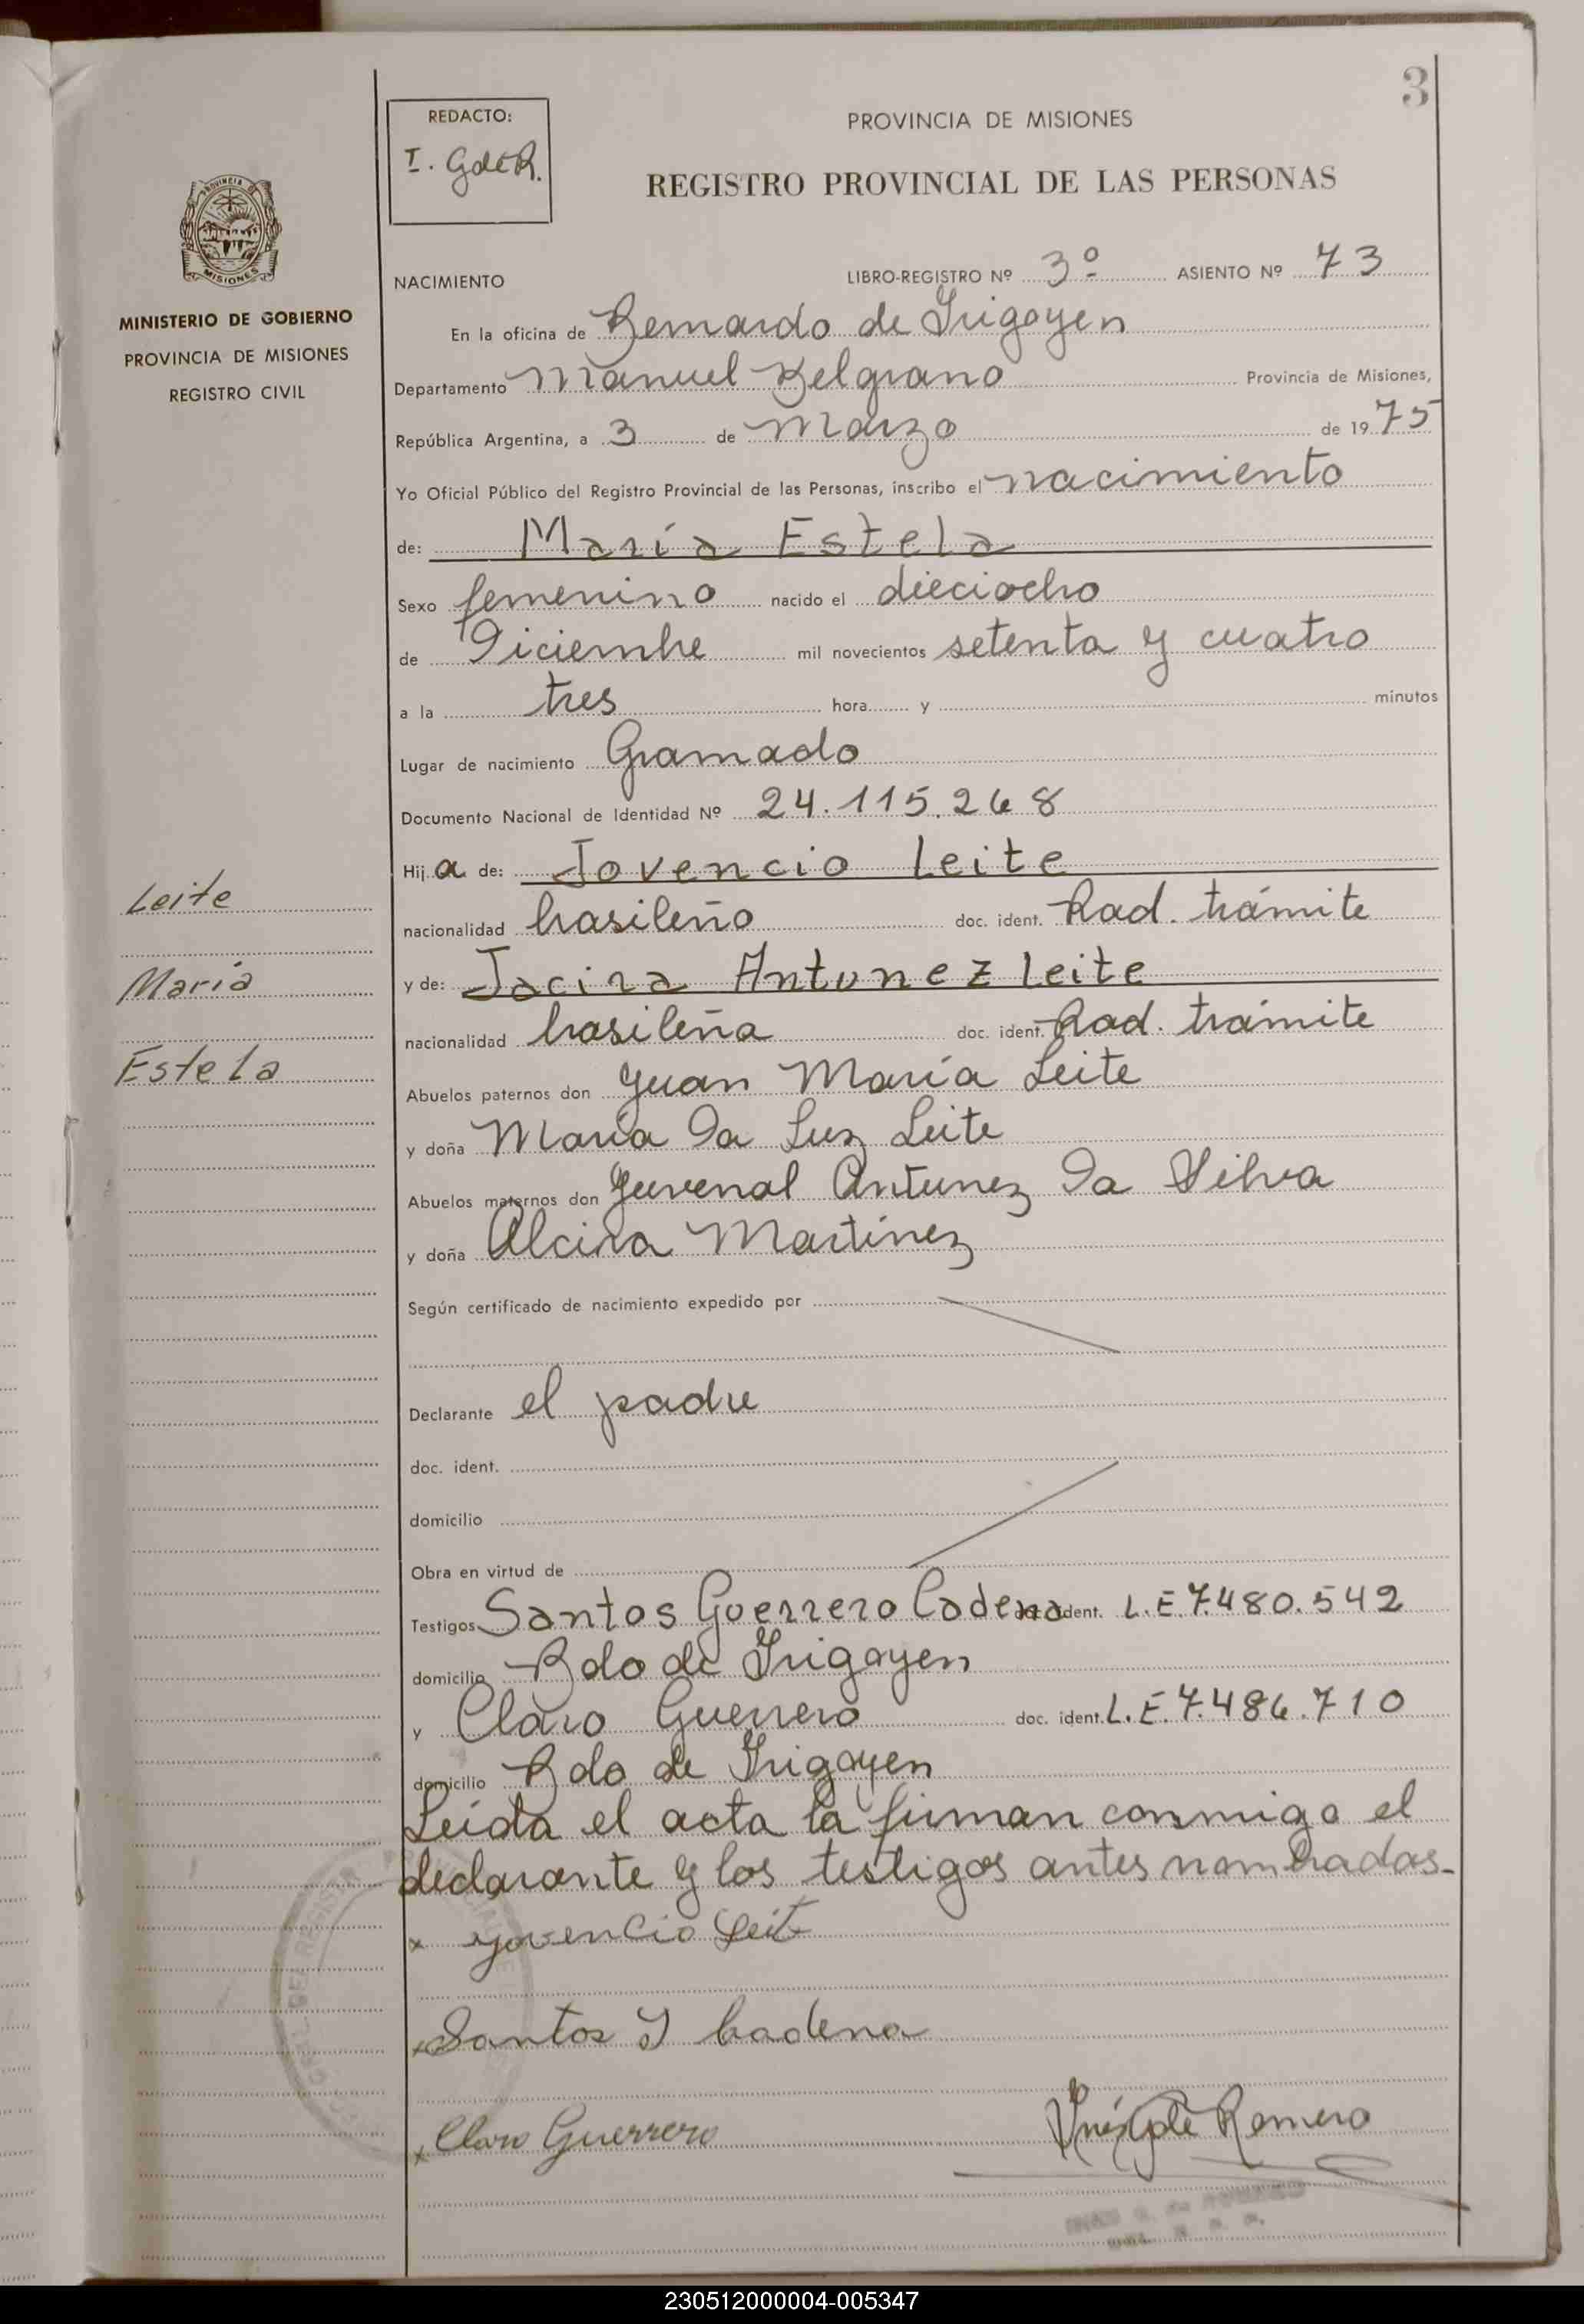 3
REDACTO:
I. GdeR.
PROVINCIA DE MISIONES
REGISTRO PROVINCIAL DE LAS PERSONAS
PROVINCIA
MISIONES
MINISTERIO DE GOBIERNO
PROVINCIA DE MISIONES
REGISTRO CIVIL
NACIMIENTO LIBRO-REGISTRO Nº 3º ASIENTO Nº 73
En la oficina de Bernardo de Irigoyen
Departamento Manuel Belgrano Provincia de Misiones,
República Argentina, a 3 de Marzo de 1975
Yo Oficial Público del Registro Provincial de las Personas, inscribo el nacimiento
de: María Estela
Sexo femenino nacido el dieciocho
de Diciembre mil novecientos setenta y cuatro
a la tres hora y minutos
Lugar de nacimiento Gramado
Documento Nacional de Identidad Nº 24.115.268
Hija de: Jovencio Leite
nacionalidad brasileño doc. ident. Rad. trámite
y de: Jacira Antunez Leite
nacionalidad brasileña doc. ident. Rad. trámite
Abuelos paternos don Juan María Leite
y doña María Da Luz Leite
Abuelos maternos don Juvenal Antunez Da Silva
y doña Alcira Martínez
Según certificado de nacimiento expedido por
Declarante el padre
doc. ident.
domicilio
Obra en virtud de
Testigos Santos Guerrero Cadena doc. ident. L.E.7.480.542
domicilio Bdo de Irigoyen
y Claro Guerrero doc. ident. L.E.7.486.710
domicilio Bdo de Irigoyen
Leída el acta la firman conmigo el
declarante y los testigos antes nombrados-
x Jovencio Leit
x Santos G Cadena
x Claro Guerrero
Inés G de Romero
Leite
María
Estela
230512000004-005347